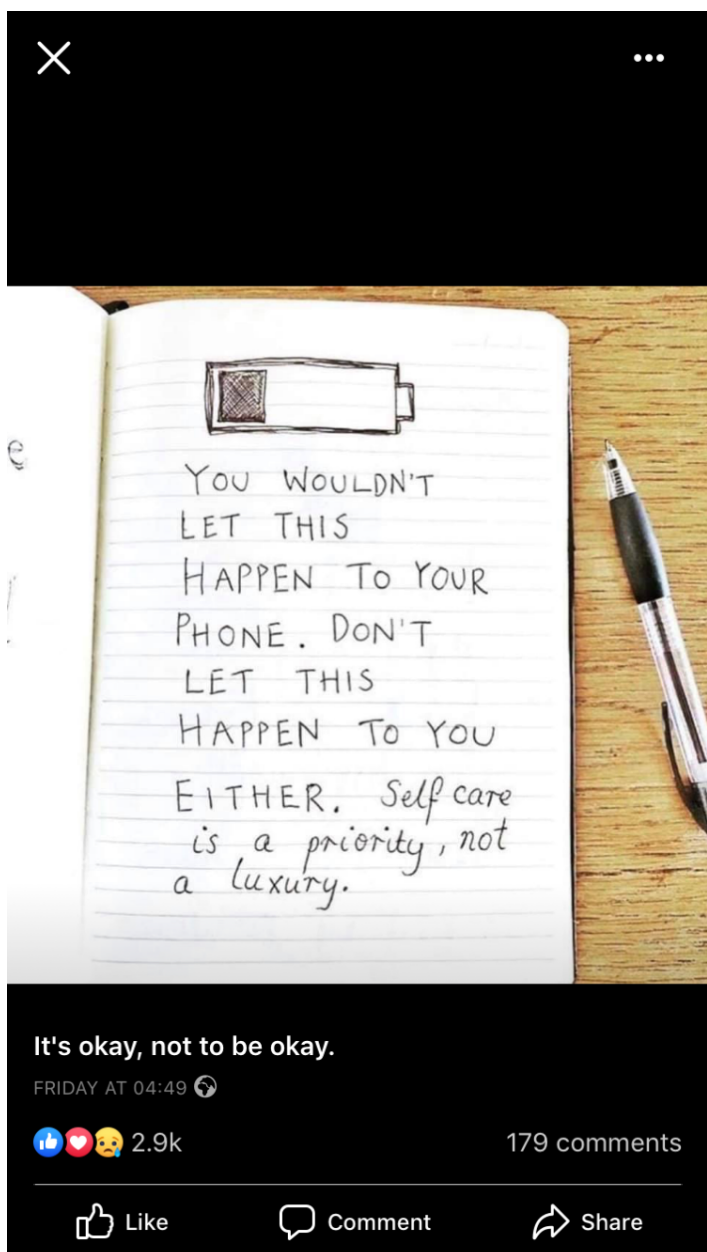 YOU WOULDN'T
LET THIS
HAPPEN TO YOUR
PHONE. DON'T
LET THIS
HAPPEN TO YOU
EITHER. Self care
is a priority, not
a luxury.
It's okay, not to be okay.
FRIDAY AT 04:49
2.9k 179 comments
Like Comment Share